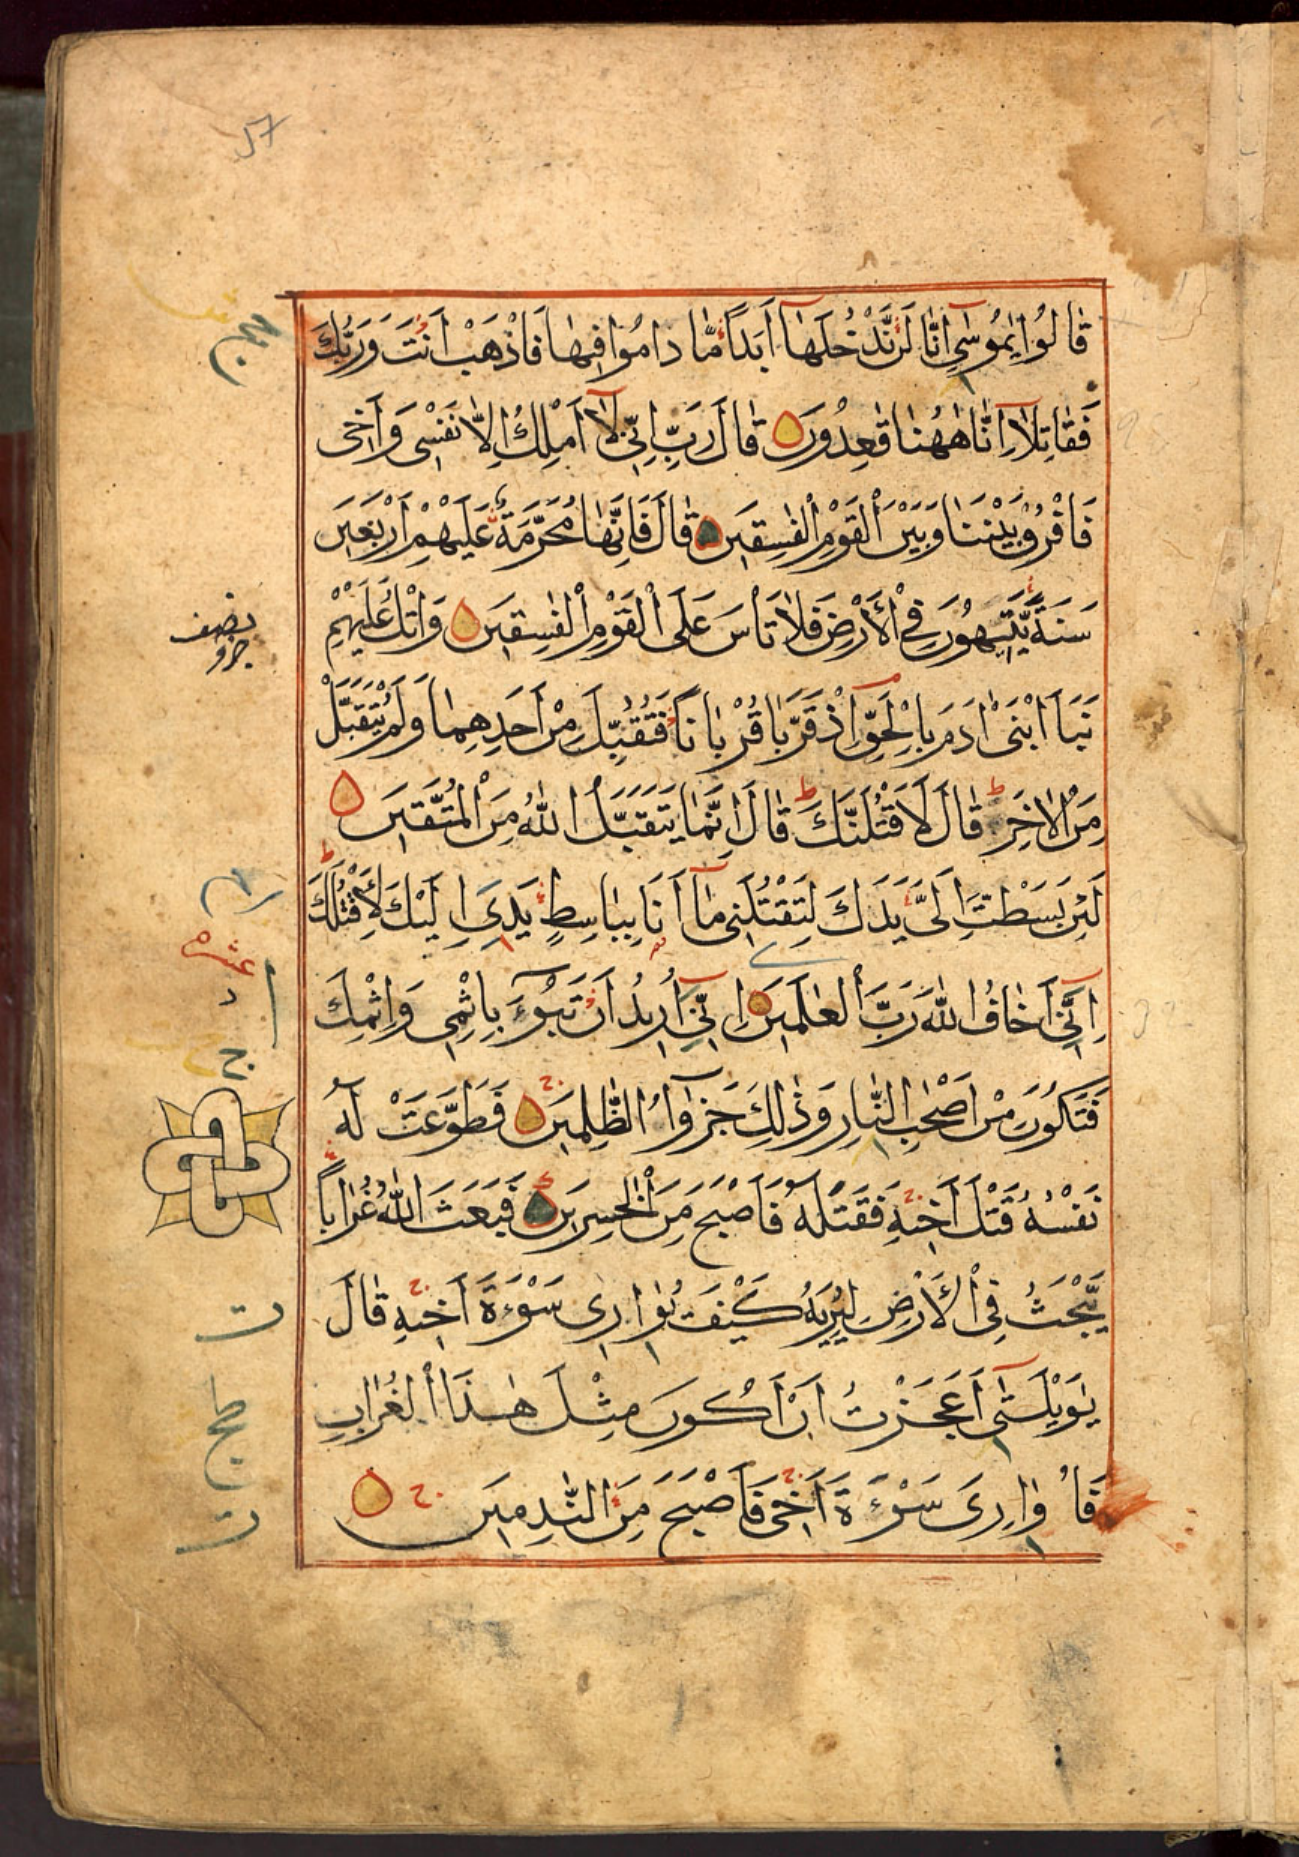 57
قَالُوا يٰمُوسٰٓى اِنَّا لَنْ نَّدْخُلَهَآ اَبَدًا مَّا دَامُوا فِيهَا فَاذْهَبْ اَنْتَ وَرَبُّكَ
فَقَاتِلَآ اِنَّا هٰهُنَا قٰعِدُونَ قَالَ رَبِّ اِنِّى لَآ اَمْلِكُ اِلَّا نَفْسِى وَاَخِى
فَافْرُقْ بَيْنَنَا وَبَيْنَ الْقَوْمِ الْفٰسِقِينَ قَالَ فَاِنَّهَا مُحَرَّمَةٌ عَلَيْهِمْ اَرْبَعِينَ
سَنَةً يَّتِيهُونَ فِى الْاَرْضِ فَلَا تَاْسَ عَلَى الْقَوْمِ الْفٰسِقِينَ وَاتْلُ عَلَيْهِمْ
نصف
جزو
نَبَاَ ابْنَىْ اٰدَمَ بِالْحَقِّ اِذْ قَرَّبَا قُرْبَانًا فَتُقُبِّلَ مِنْ اَحَدِهِمَا وَلَمْ يُتَقَبَّلْ
مِنَ الْاٰخَرِ ط قَالَ لَاَقْتُلَنَّكَ ط قَالَ اِنَّمَا يَتَقَبَّلُ اللّٰهُ مِنَ الْمُتَّقِينَ
لَئِنْ بَسَطْتَ اِلَىَّ يَدَكَ لِتَقْتُلَنِى مَآ اَنَا بِبَاسِطٍ يَدِىَ اِلَيْكَ لِاَقْتُلَكَ ط
عشره
اِنِّىٓ اَخَافُ اللّٰهَ رَبَّ الْعٰلَمِينَ اِنِّىٓ اُرِيدُ اَنْ تَبُوٓءَ بِاِثْمِى وَاِثْمِكَ
فَتَكُونَ مِنْ اَصْحٰبِ النَّارِ وَذٰلِكَ جَزٰٓؤُا الظّٰلِمِينَ فَطَوَّعَتْ لَهُ
نَفْسُهُ قَتْلَ اَخِيهِ فَقَتَلَهُ فَاَصْبَحَ مِنَ الْخٰسِرِينَ فَبَعَثَ اللّٰهُ غُرَابًا
يَّبْحَثُ فِى الْاَرْضِ لِيُرِيَهُ كَيْفَ يُوَارِى سَوْءَةَ اَخِيهِ قَالَ
يٰوَيْلَتٰٓى اَعَجَزْتُ اَنْ اَكُونَ مِثْلَ هٰذَا الْغُرَابِ
فَاُوَارِىَ سَوْءَةَ اَخِى فَاَصْبَحَ مِنَ النّٰدِمِينَ